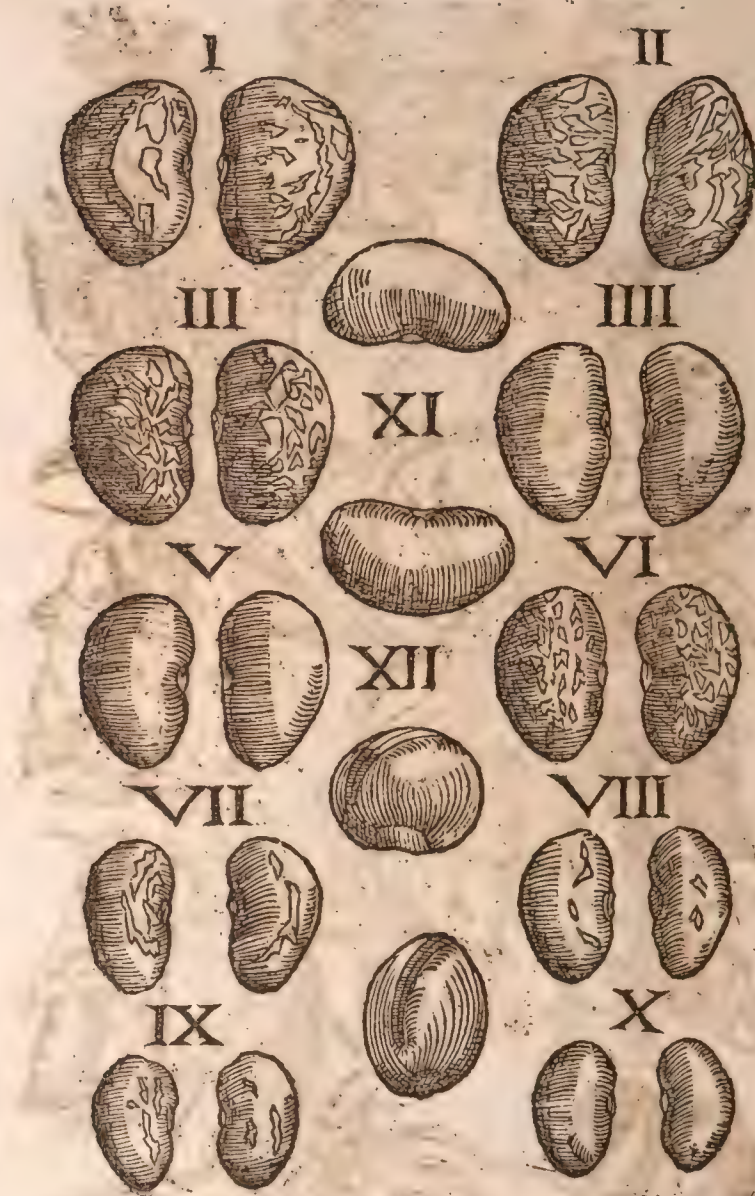 I II
III IIII
XI
V VI
XII
VII VIII
IX X